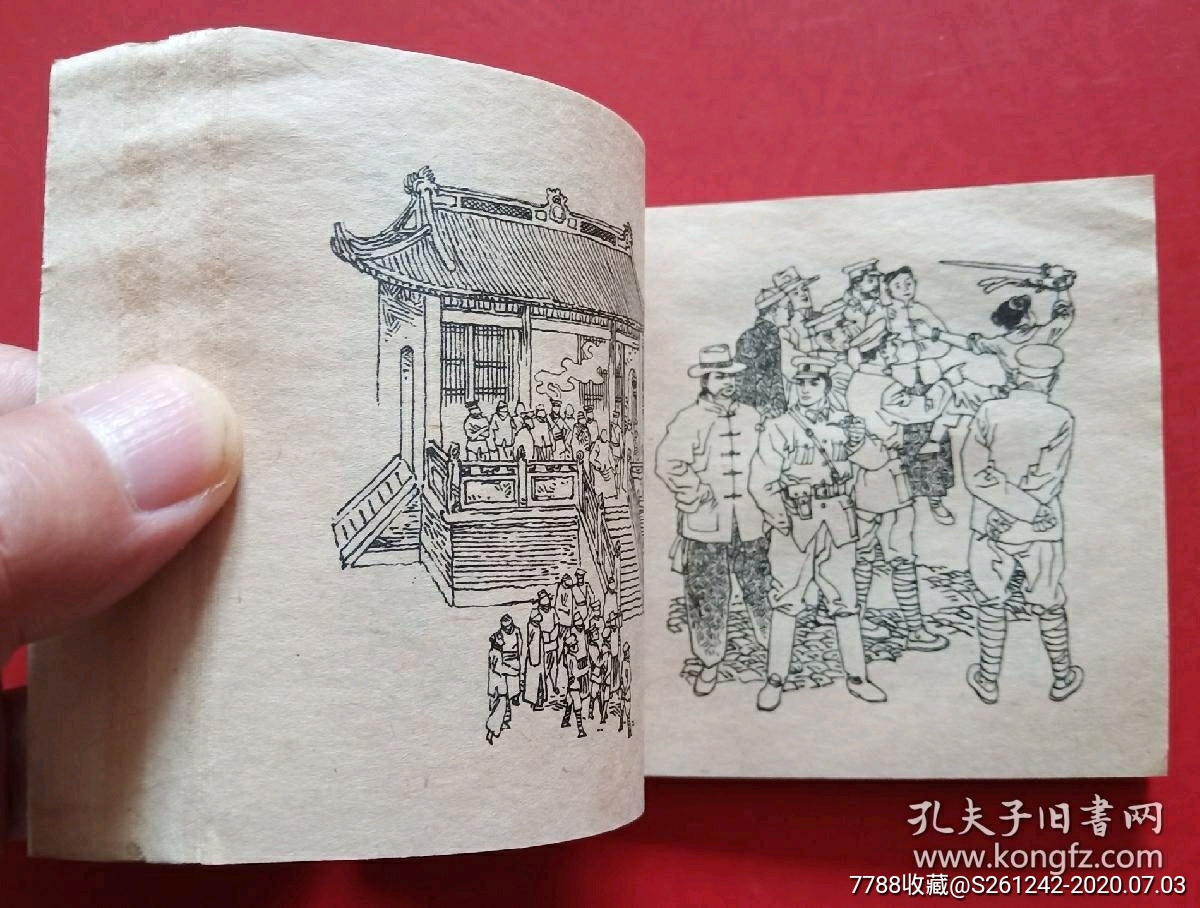 孔夫子旧書网
www.kongfz.com
7788收藏@S261242-2020.07.03